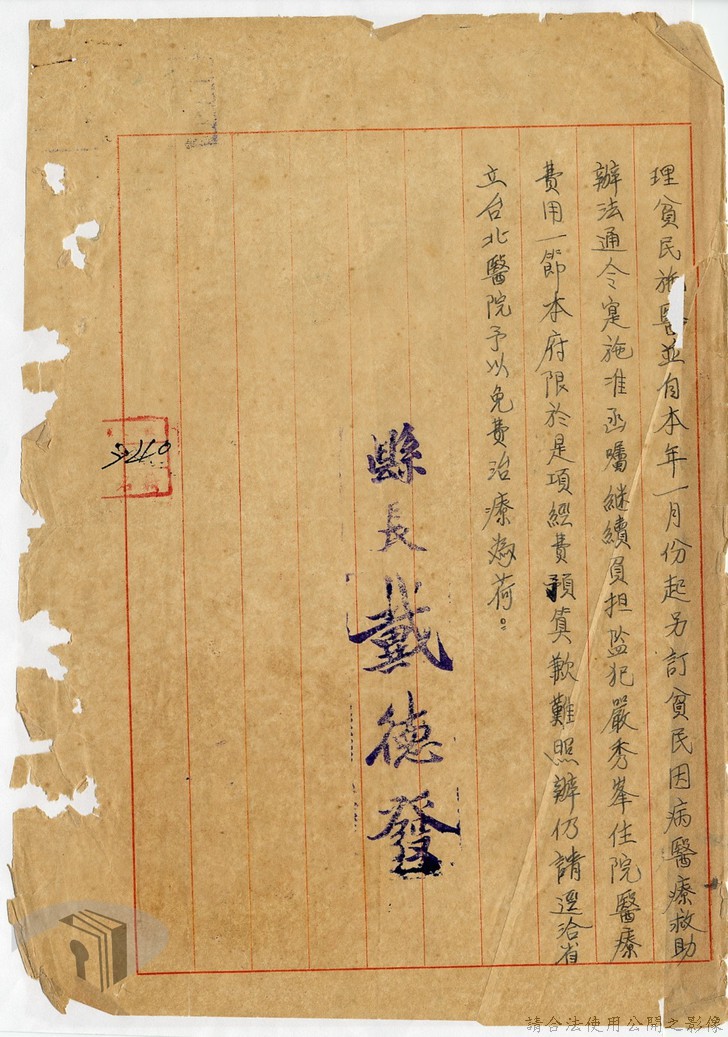 理貧民施醫並自本年一月份起另訂貧民因病醫療救助
辦法通令寔施准函囑継續負担监犯嚴秀峯住院醫療
費用一節本府限於是項經費預算歉難照辦仍請逕洽省
立台北醫院予以免費治療為荷。
縣長戴德發
0776
請合法使用公開之影像